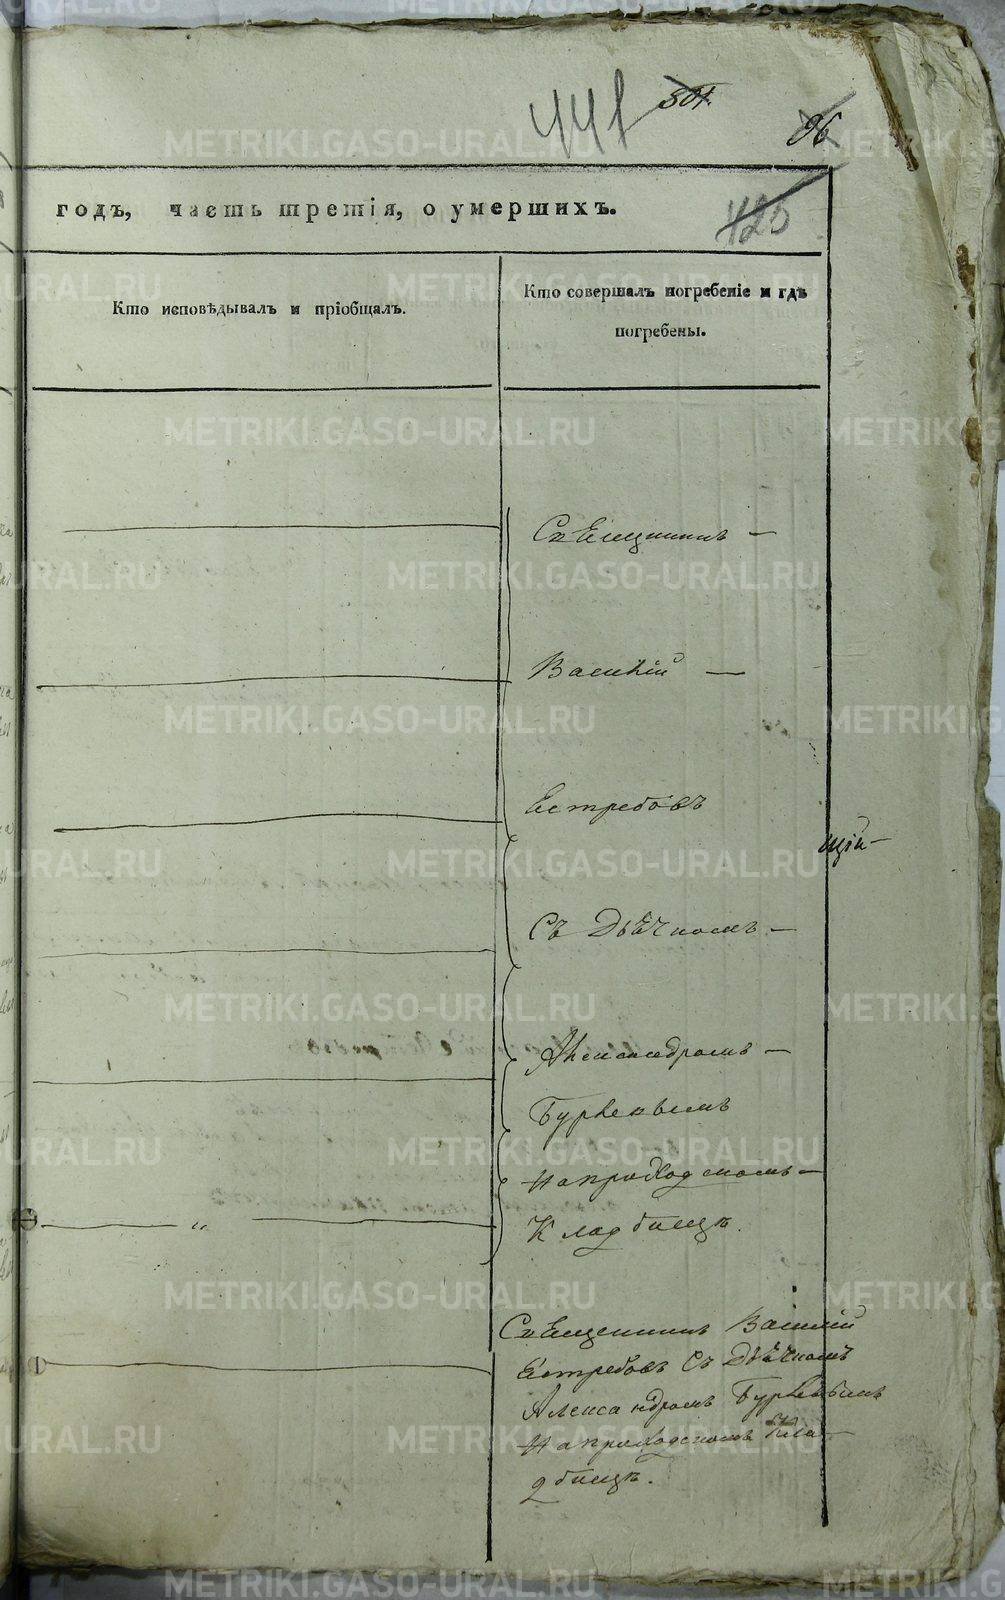 441 501.
96
годъ, часть третія, о умершихъ.
425
Кто исповѣдывалъ и пріобщалъ.
Кто совершалъ погребеніе и гдѣ
погребены.
Священникъ —
Василій —
Естребовъ
щій—
Съ Дьячкомъ —
Александромъ —
Бурцевымъ
На приходскомъ —
Кладбищѣ.
Священникъ Василій
Естребовъ Съ Дьячкомъ
Александромъ Бурцевымъ
На приходскомъ Кла-
дбищѣ.
METRIKI.GASO-URAL.RU